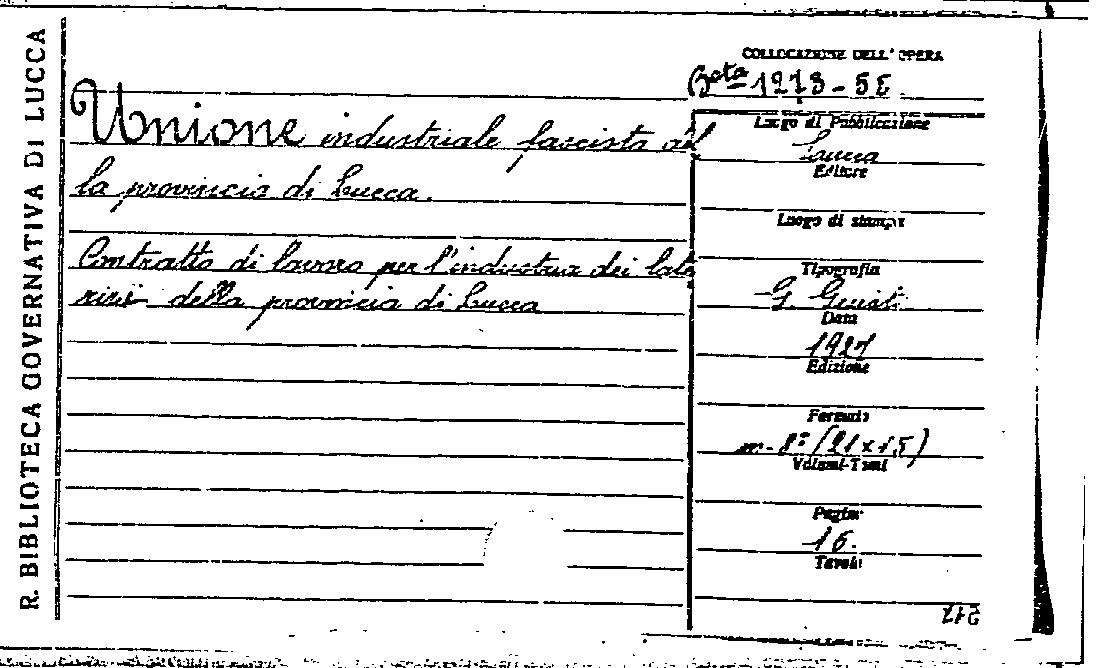 R. BIBLIOTECA GOVERNATIVA DI LUCCA
COLLOCAZIONE DELL'OPERA
Unione industriale fascista del
la provincia di Lucca.
Contratto di lavoro per l'industria dei late
rizi della provincia di Lucca
Luogo di Pubblicazione
Lucca
Editore
Luogo di stampa
Tipografia
G. Giusti
Data
1927
Edizione
Formato
in-8° (21x15)
Volumi-Tomi
Pagine
16.
Tavole